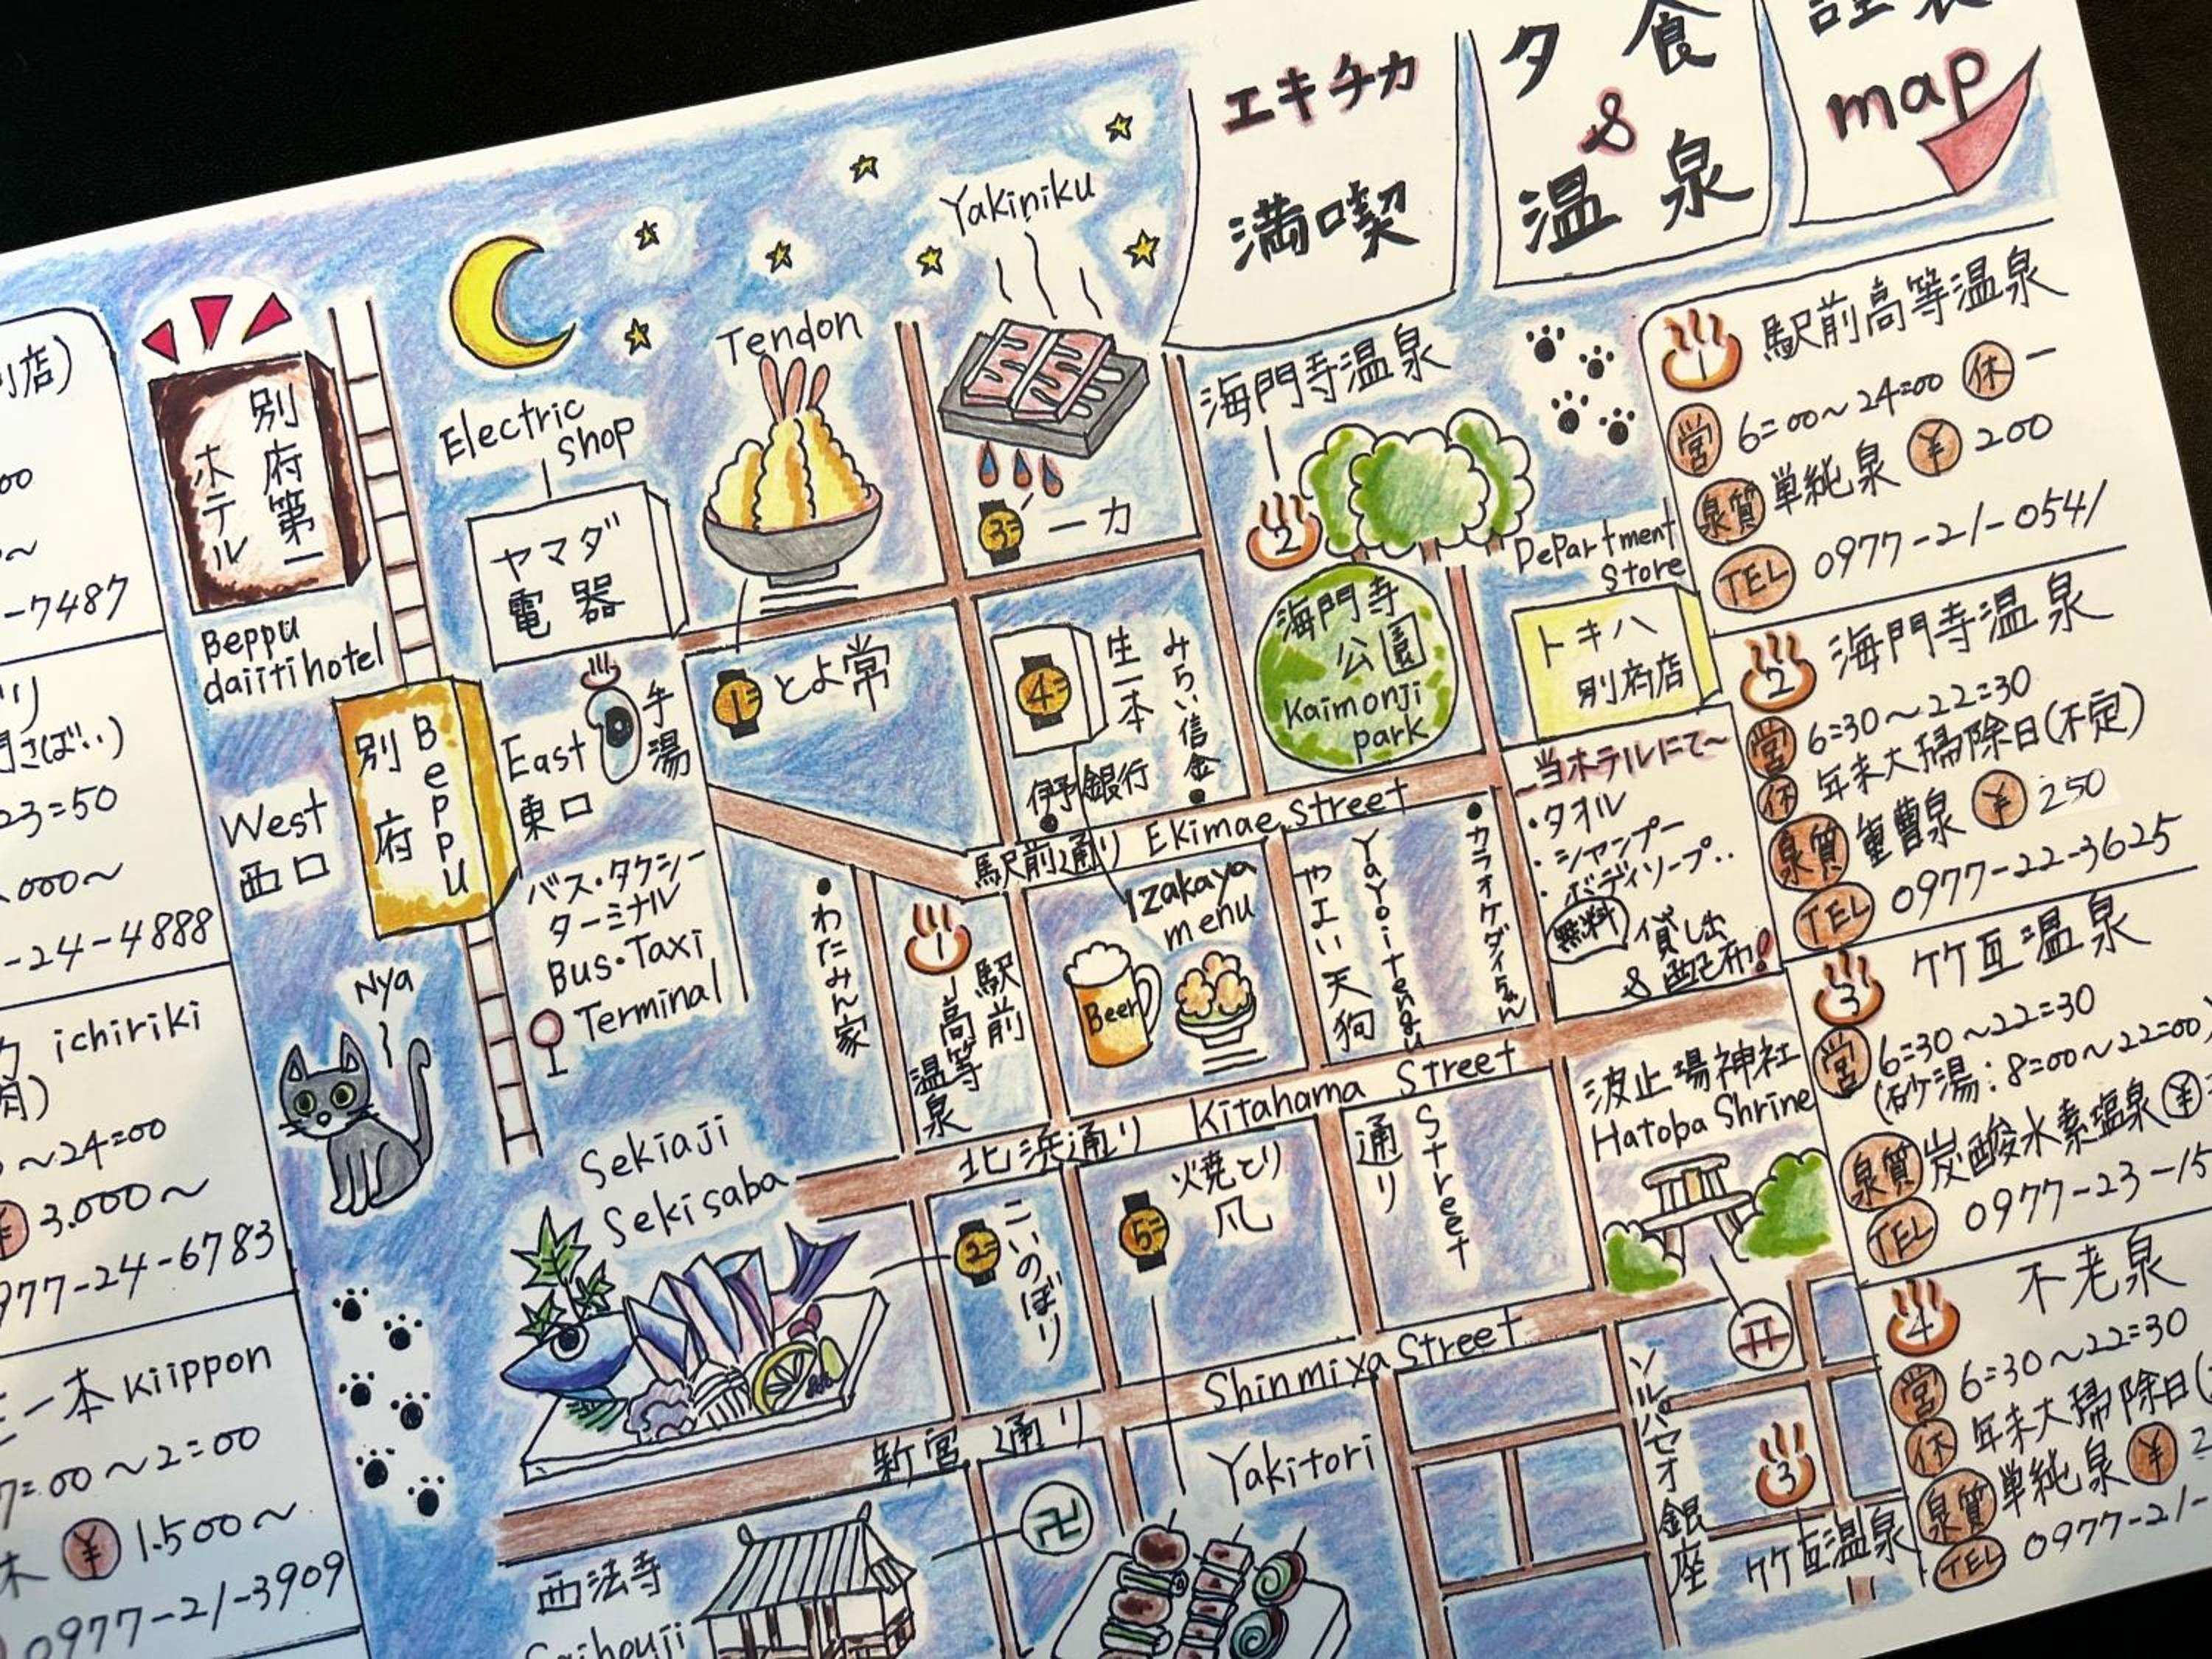 エキチカ
満喫
夕食
&
温泉
map
店)
00
~
-7487
り
23=50
000~
-24-4888
ichiriki
~24=00
3.000~
0977-24-6783
一本 Kiippon
7=00~2=00
木 ¥ 1.500~
0977-21-3909
別府第一
ホテル
Beppu
daiitihotel
Electric
shop
ヤマダ
電器
Tendon
Yakiniku
3=
一力
海門寺温泉
2
海門寺
公園
Kaimonji
park
Department
store
トキハ
別府店
1=
とよ常
4=
生一本
みらい信金
伊予銀行
Beppu
別府
East
東口
手湯
West
西口
バス・タクシー
ターミナル
Bus・Taxi
Terminal
Nya
駅前通り Ekimae Street
わたみん家
1
駅前
高等
温泉
Izakaya
menu
Beer
やよい天狗
Yayoitengu
カラオケダイちゃん
~当ホテルにて~
・タオル
・シャンプー
・ボディソープ..
無料 貸し出
& 配布!
北浜通り Kitahama Street
通り
Street
波止場神社
Hatoba Shrine
Sekiaji
Sekisaba
2=
こいのぼり
5=
火焼とり
凡
新宮通り Shinmiya Street
卍
西法寺
Saihouji
Yakitori
ソルパセオ銀座
3
竹瓦温泉
1 駅前高等温泉
営 6=00~24=00 休 一
泉質 単純泉 ¥ 200
TEL 0977-21-0541
2 海門寺温泉
営 6=30~22=30
休 年末大掃除日(不定)
泉質 重曹泉 ¥ 250
TEL 0977-22-3625
3 竹瓦温泉
営 6=30~22=30
(砂湯:8=00~22=00)
泉質 炭酸水素塩泉 ¥
TEL 0977-23-15
4 不老泉
営 6=30~22=30
休 年末大掃除日(
泉質 単純泉 ¥ 2
TEL 0977-21-